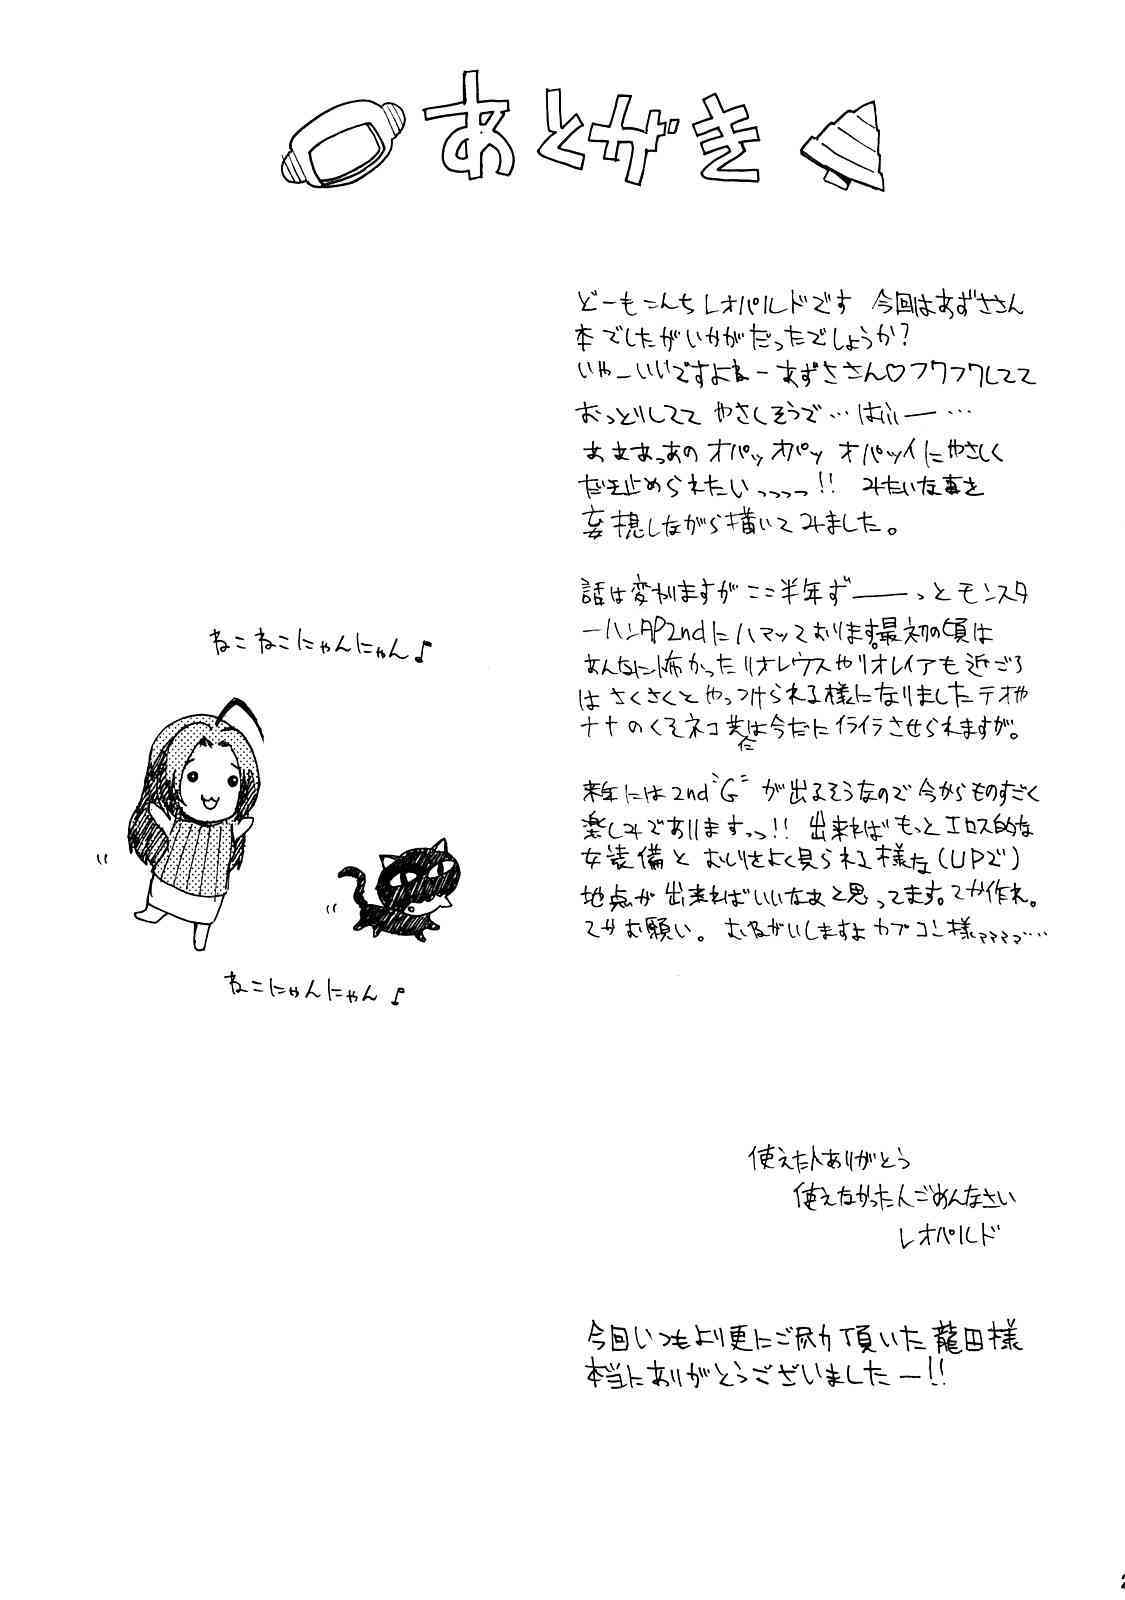 あとがき
どーもこんちレオパルドです 今回はあずささん
本でしたがいかがだったでしょうか?
いやーいいですよねーあずささん♡フワフワしてて
おっとりしてて やさしそうで…はふぃー…
ああああっあの オパッ オパッ オパッイにやさしく
だき止められたいっっっっ!! みたいな事を
妄想しながら描いてみました。
話は変わりますが ここ半年ず――っと モンスタ
ーハンターP2ndにハマッております。最初の頃は
あんなに怖かったリオレウスやリオレイアも近ごろ
はさくさくとやっつけられる様になりましたテオや
ナナのくそネコ共は今だにイライラさせられますが。
来年には2nd"G"が出るそうなので今からものすごく
楽しみでありますっっ!! 出来ればもっとエロス的な
女装備と おしりをよく見られる様な(UPで)
地点が出来ればいいなぁと思ってます。てか作れ。
てかお願い。 おねがいしますよカプコン様ァァァァ……
ねこねこにゃんにゃん♪
ねこにゃんにゃん♪
使えた人ありがとう
使えなかった人ごめんなさい
レオパルド
今回いつもより更にご尽力頂いた龍田様
本当にありがとうございましたー!!